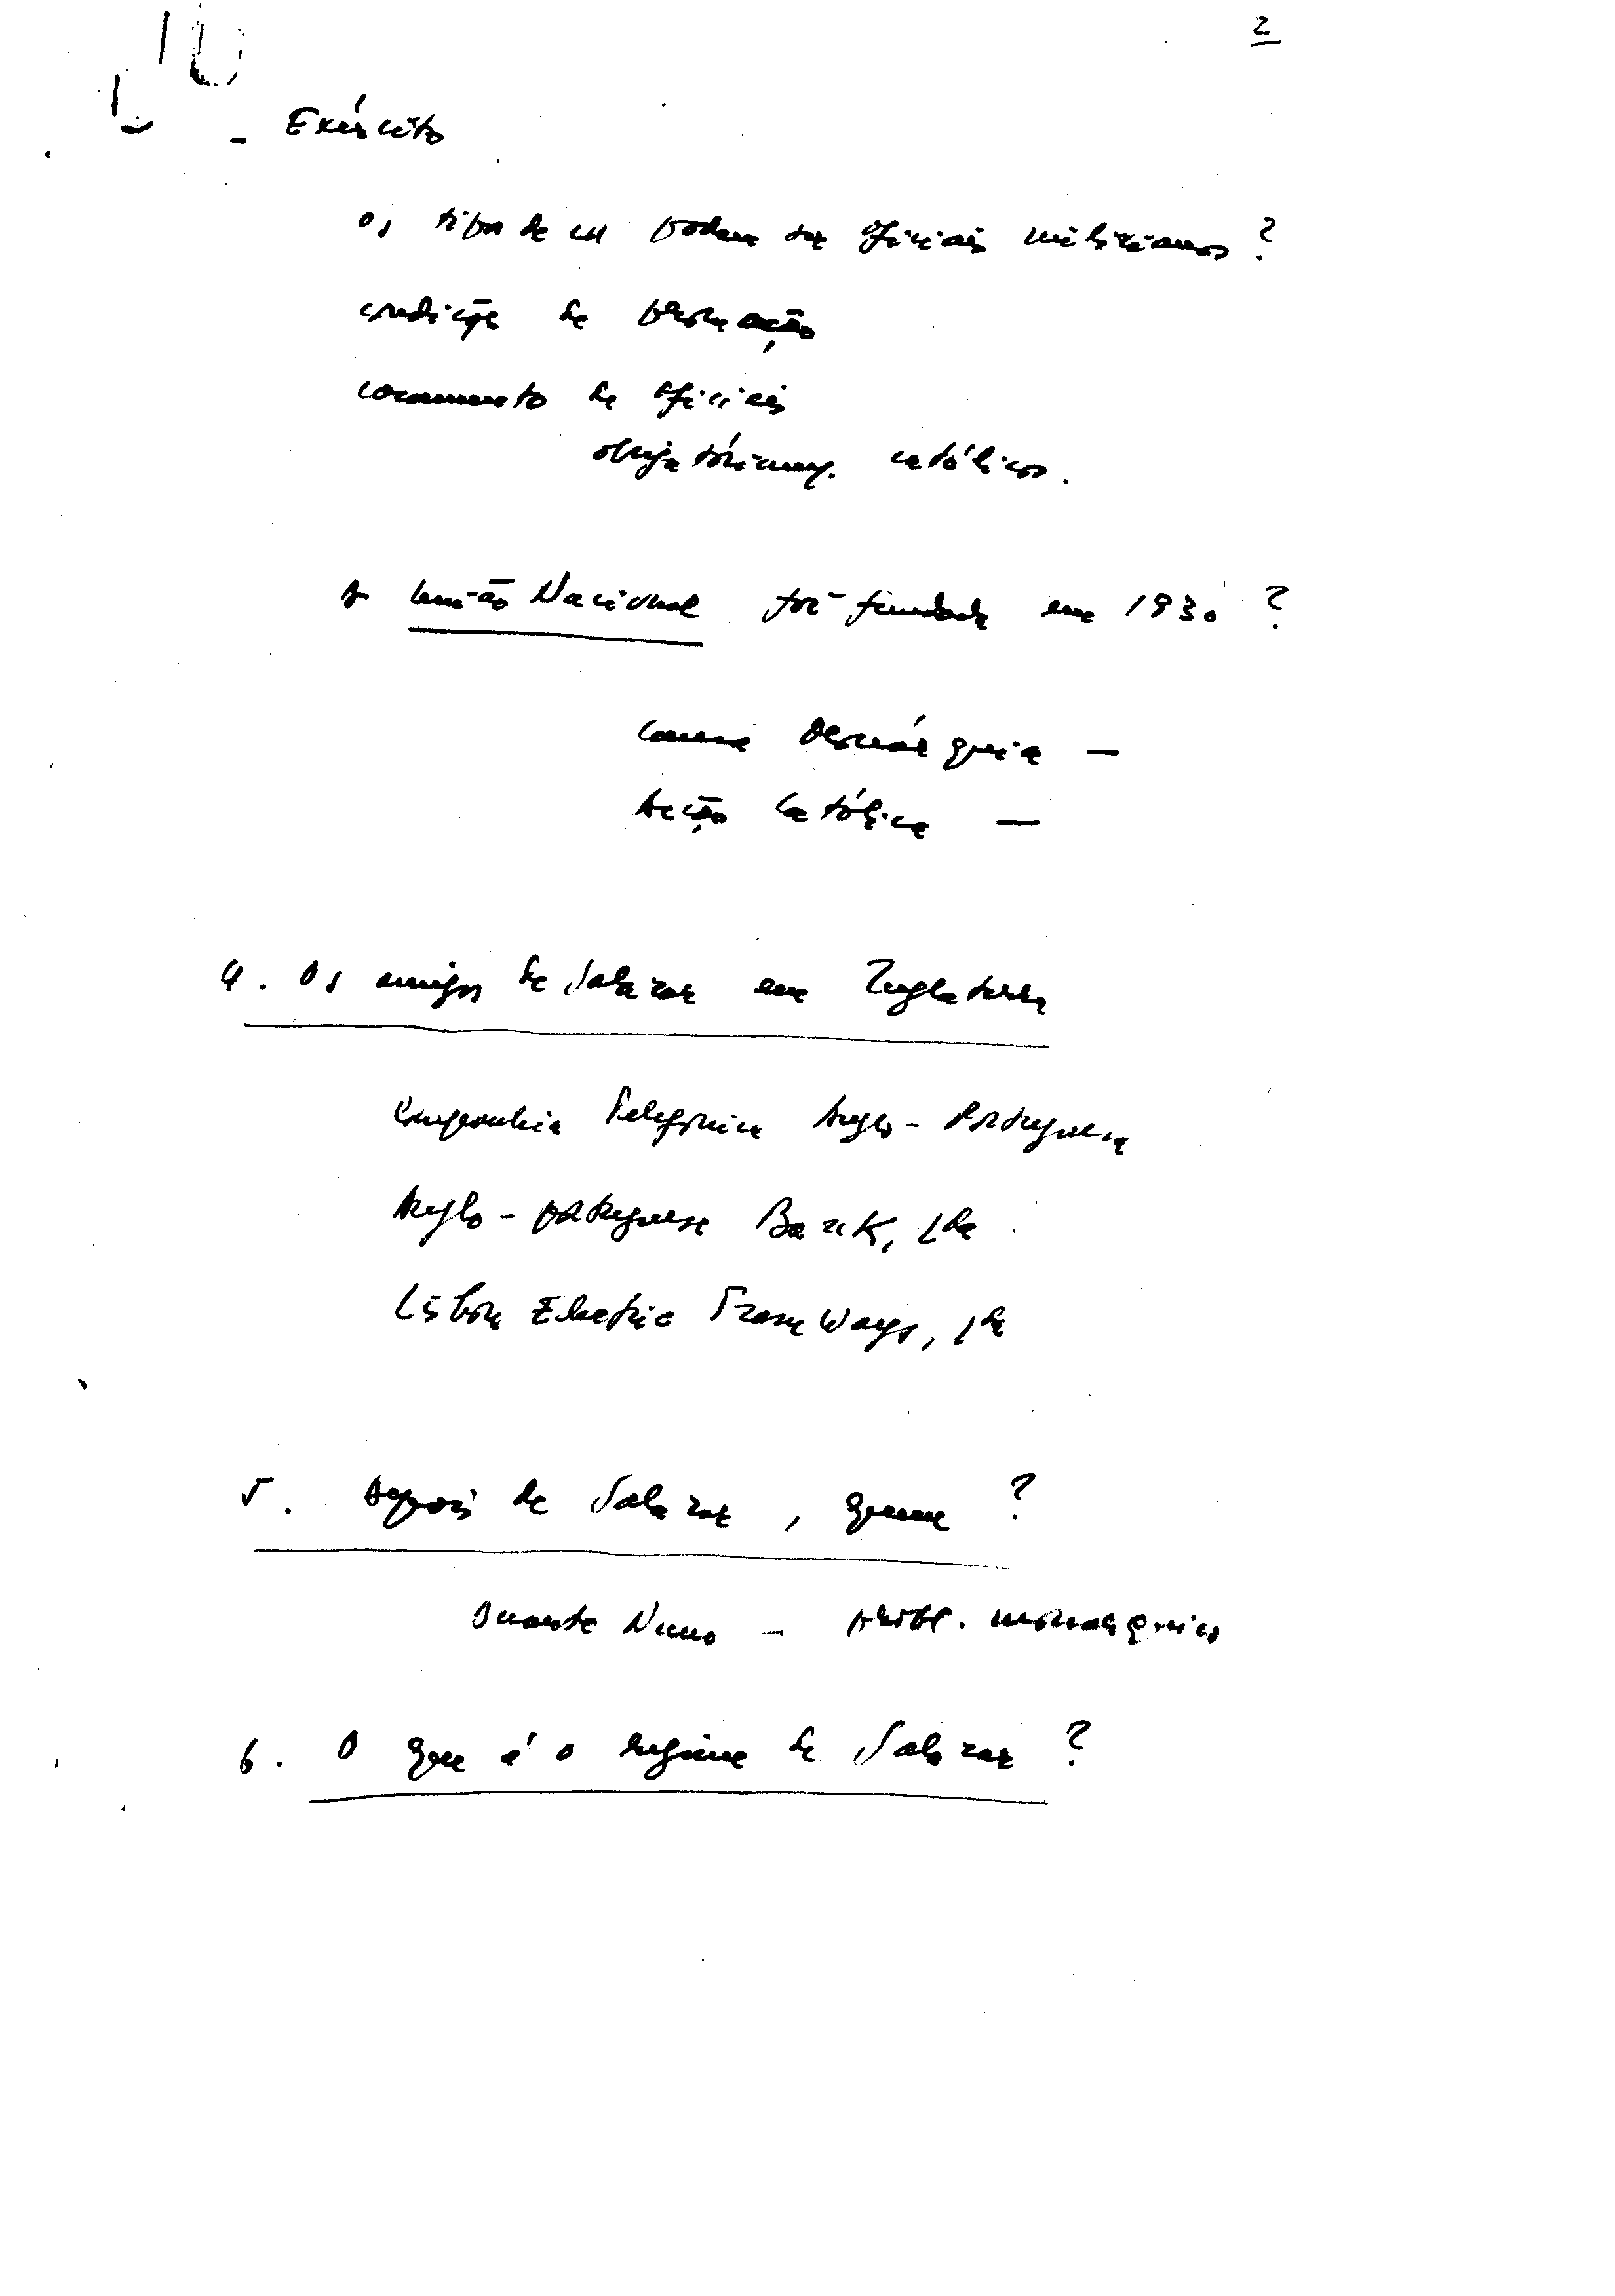 2
- Exército
Os tipos de cor podem ser oficiais milicianos?
condições de promoção
casamento de oficiais
obrigatóriamt. católicos.
A União Nacional foi fundada em 1930?
Causa Monárquica —
Acção Católica —
4. Os amigos de Salazar em Inglaterra
Companhia Telefónica Anglo-Portuguesa
Anglo-portuguese Bank, Lda
Lisbon Electric TramWays, Lda
5. Depois de Salazar, quem?
Duarte Nuno - probl. monárquico
6. O que é o regime de Salazar?